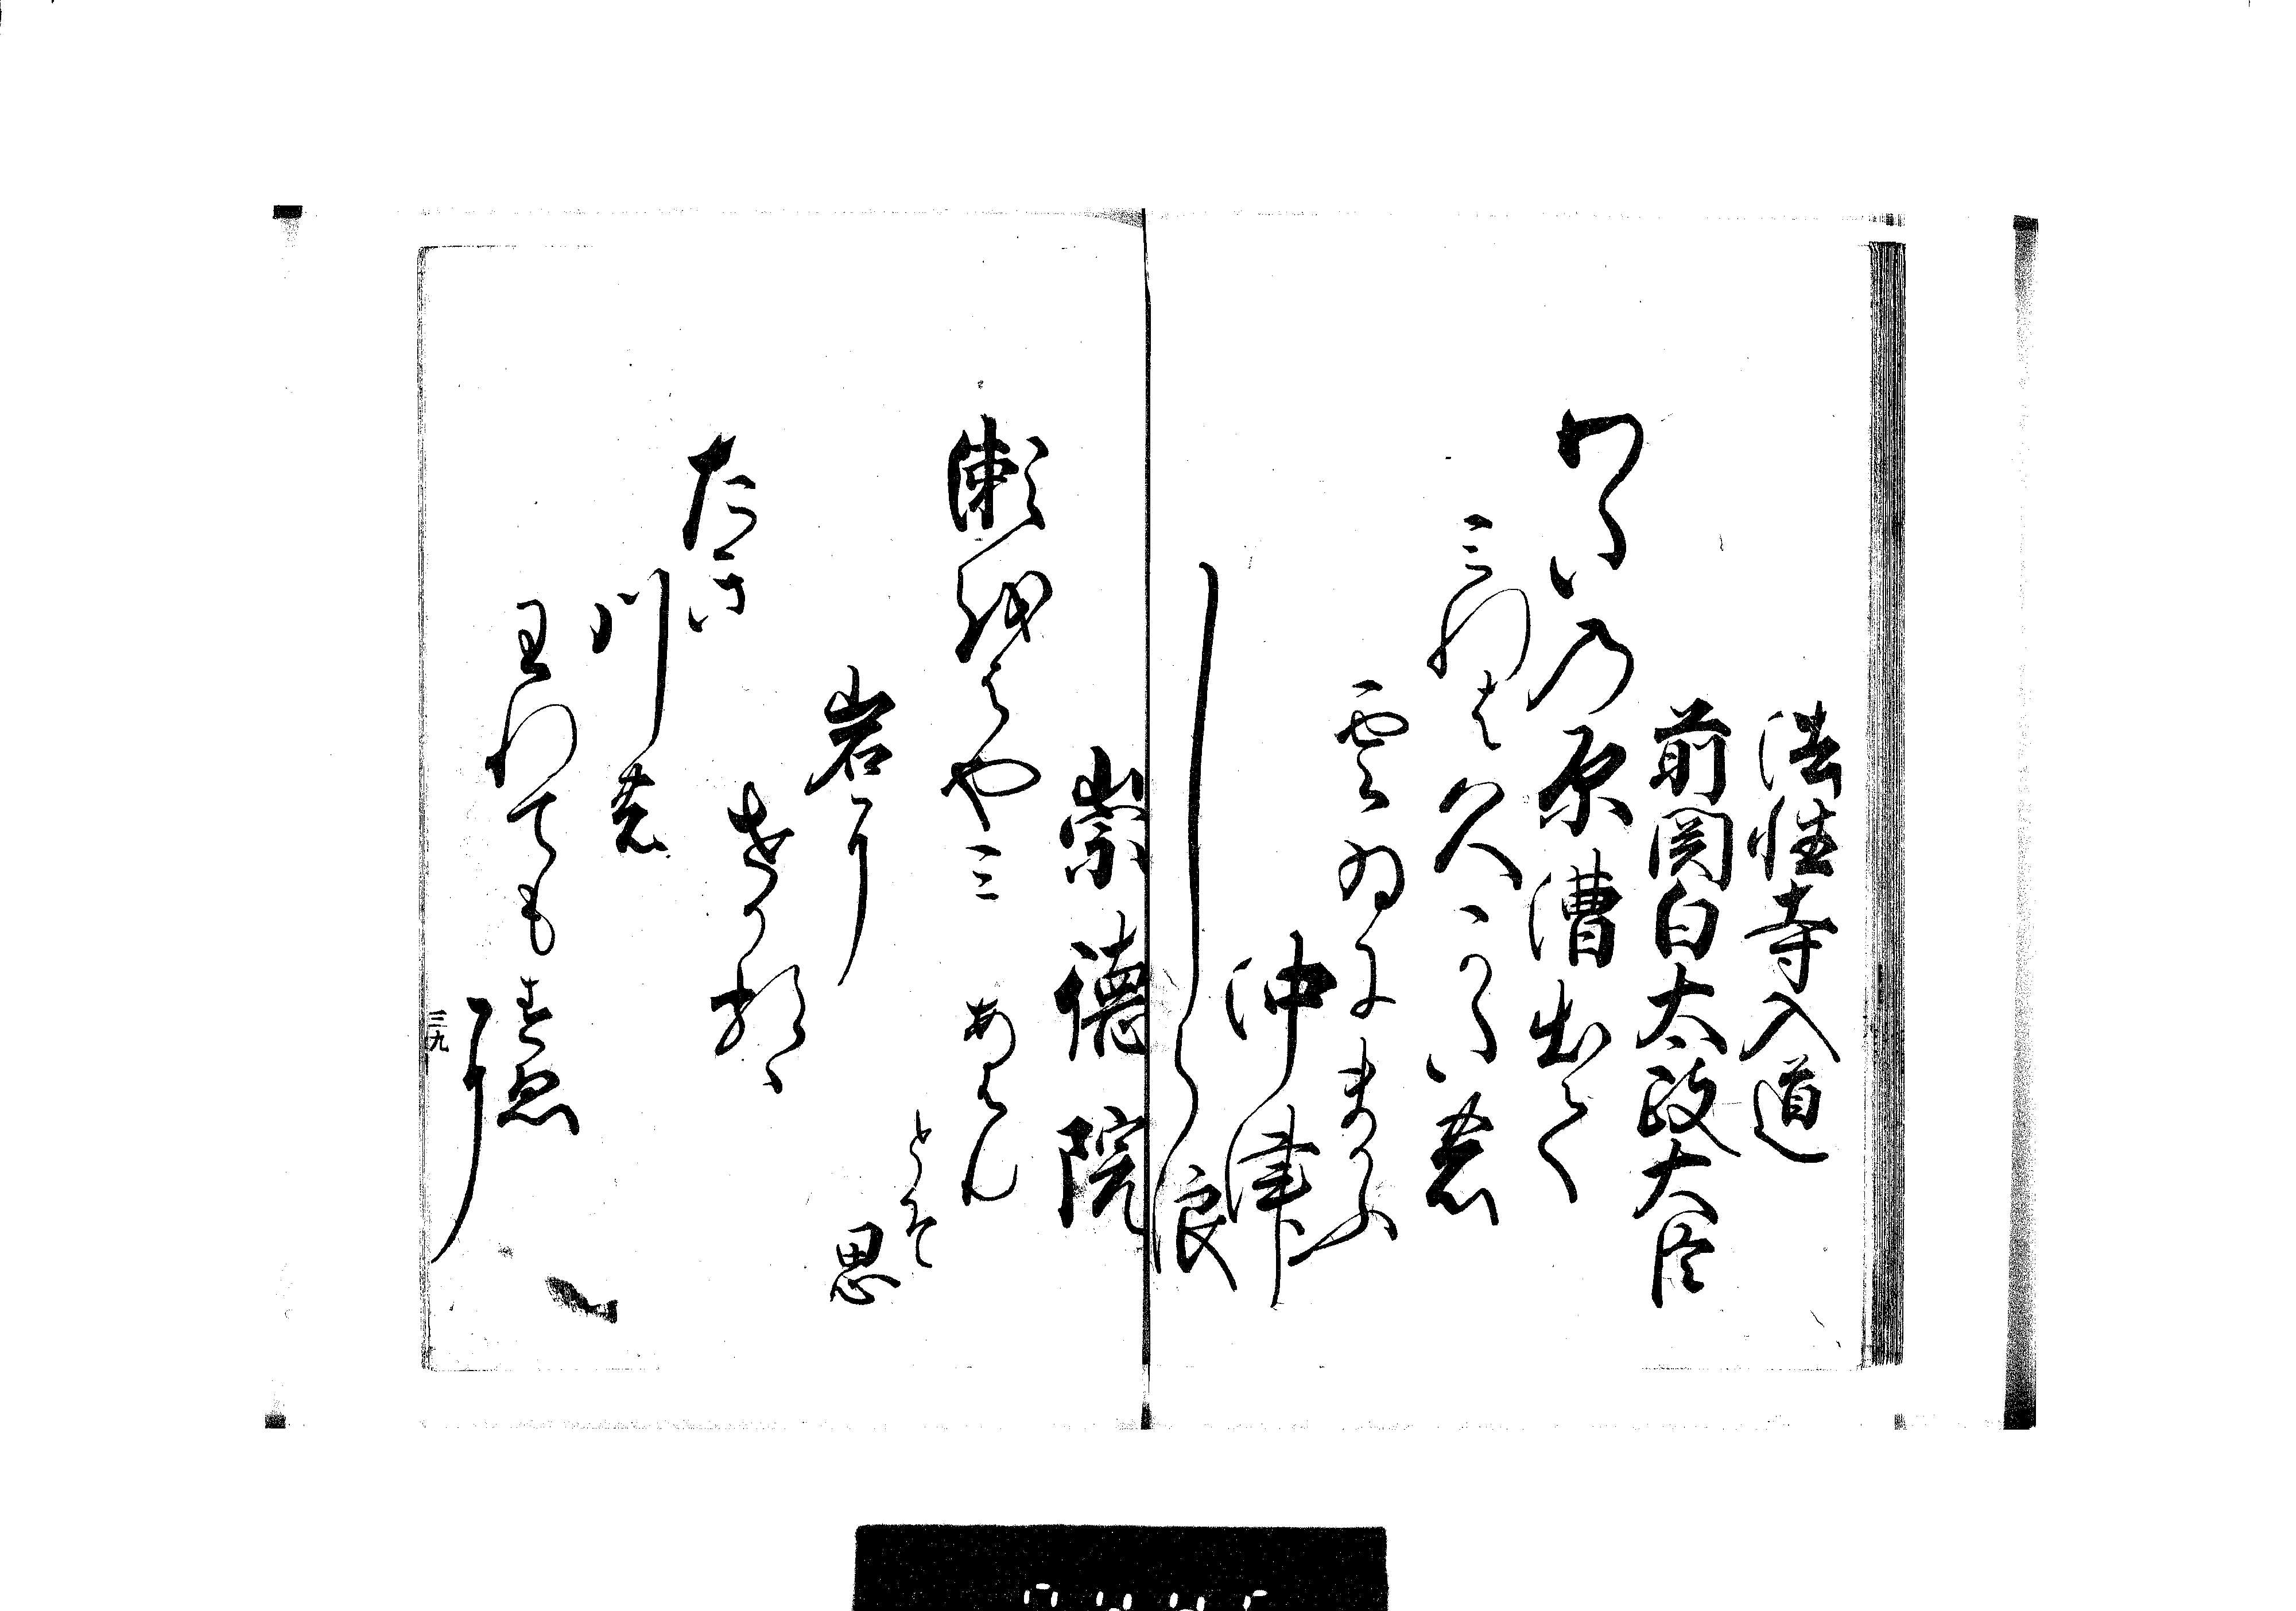 法性寺入道
前関白太政大臣
わた乃原漕出て
三れは久かたの
雲ゐにまかふ
沖津
しら浪
崇徳院
瀬越はや三
岩に
せかるゝ
たき
川の
王れても春ゑ
に
あはん
とそ
思
三九